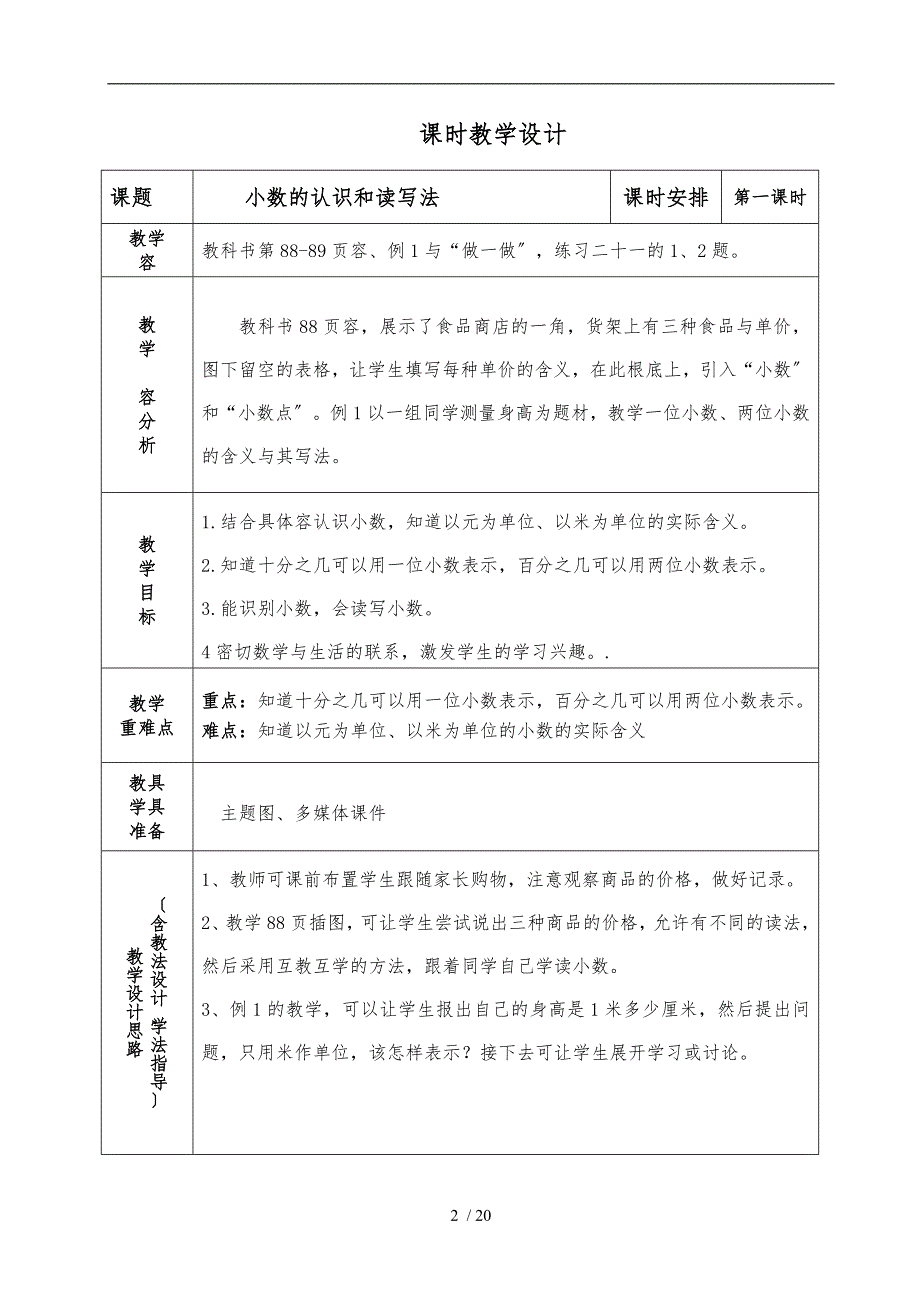 课时教学设计
课题 小数的认识和读写法 课时安排 第一课时
教学
容
教科书第88-89页容、例1与“做一做〞，练习二十一的1、2题。
教
学
容
分
析
教科书88页容，展示了食品商店的一角，货架上有三种食品与单价，
图下留空的表格，让学生填写每种单价的含义，在此根底上，引入“小数〞
和“小数点〞。例1以一组同学测量身高为题材，教学一位小数、两位小数
的含义与其写法。
教
学
目
标
1.结合具体容认识小数，知道以元为单位、以米为单位的实际含义。
2.知道十分之几可以用一位小数表示，百分之几可以用两位小数表示。
3.能识别小数，会读写小数。
4密切数学与生活的联系，激发学生的学习兴趣。.
教学
重难点
重点：知道十分之几可以用一位小数表示，百分之几可以用两位小数表示。
难点：知道以元为单位、以米为单位的小数的实际含义
教具
学具
准备
主题图、多媒体课件
教学设计思路
〔含教法设计 学法指导〕
1、教师可课前布置学生跟随家长购物，注意观察商品的价格，做好记录。
2、教学88页插图，可让学生尝试说出三种商品的价格，允许有不同的读法，
然后采用互教互学的方法，跟着同学自己学读小数。
3、例1的教学，可以让学生报出自己的身高是1米多少厘米，然后提出问
题，只用米作单位，该怎样表示？接下去可让学生展开学习或讨论。
2 / 20